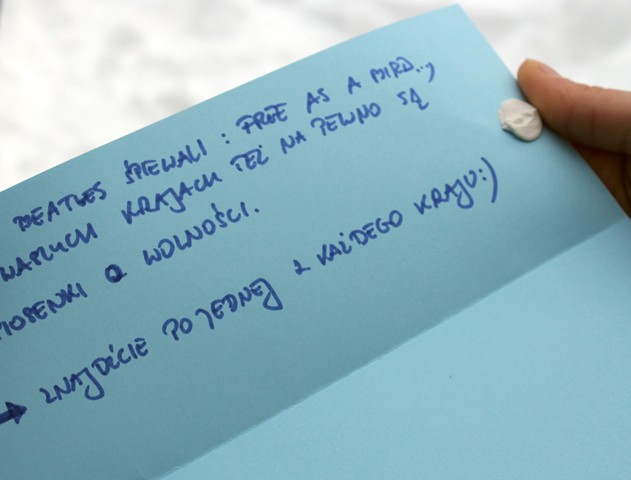 BEATLES ŚPIEWALI : FREE AS A BIRD..,
WASZYCH KRAJACH TEŻ NA PEWNO SĄ
PIOSENKI O WOLNOŚCI.
→ ZNAJDŹCIE PO JEDNEJ Z KAŻDEGO KRAJU:)